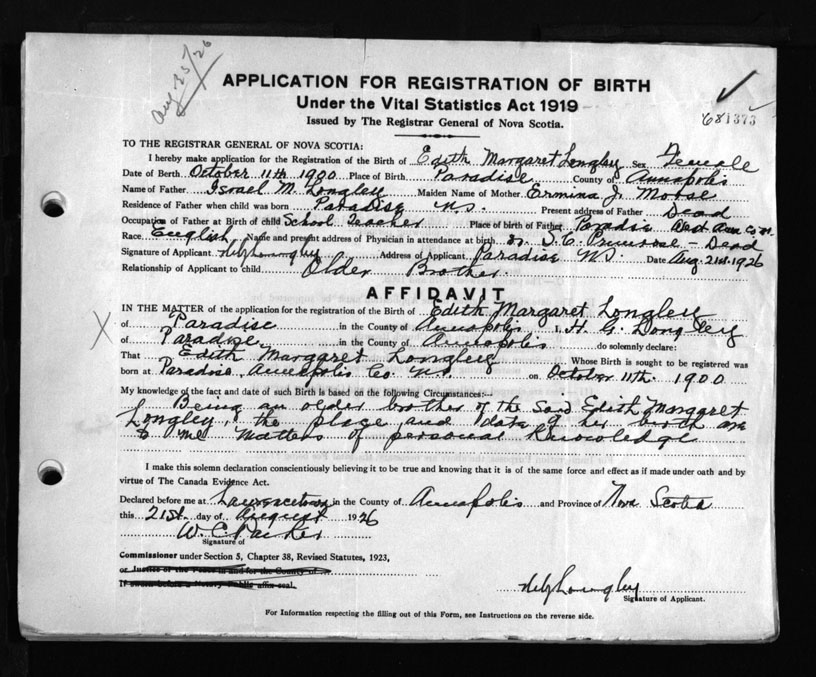 Aug 25/26
APPLICATION FOR REGISTRATION OF BIRTH
Under the Vital Statistics Act 1919
Issued by The Registrar General of Nova Scotia.
681373
TO THE REGISTRAR GENERAL OF NOVA SCOTIA:
I hereby make application for the Registration of the Birth of Edith Margaret Longley Sex Female
Date of Birth October 11th 1900 Place of Birth Paradise County of Annapolis
Name of Father Israel M. Longley Maiden Name of Mother Ermina J. Morse
Residence of Father when child was born Paradise N.S. Present address of Father Dead
Occupation of Father at Birth of child School Teacher Place of birth of Father Paradise West Ann Co N.S.
Race English Name and present address of Physician in attendance at birth Dr. S. C. Primrose - Dead
Signature of Applicant Address of Applicant Paradise N.S. Date Aug. 21st. 1926
Relationship of Applicant to child Older Brother.
AFFIDAVIT
IN THE MATTER of the application for the registration of the Birth of Edith Margaret Longley
of Paradise in the County of Annapolis I, H. G. Longley
of Paradise in the County of Annapolis do solemnly declare:
That Edith Margaret Longley Whose Birth is sought to be registered was
born at Paradise, Annapolis Co. N.S. on October 11th. 1900
My knowledge of the fact and date of such Birth is based on the following Circumstances:--
Being an older brother of the said Edith Margaret
Longley, the place and data of her birth are
to me matters of personal knowledge
I make this solemn declaration conscientiously believing it to be true and knowing that it is of the same force and effect as if made under oath and by
virtue of The Canada Evidence Act.
Declared before me at Lawrencetown in the County of Annapolis and Province of Nova Scotia
this 21st. day of August 1926
W. C. Parker
Signature of
Commissioner under Section 5, Chapter 38, Revised Statutes, 1923,
or Justice of the Peace in and for the County of
If sworn before a Notary Public affix seal.
Signature of Applicant.
For Information respecting the filling out of this Form, see Instructions on the reverse side.